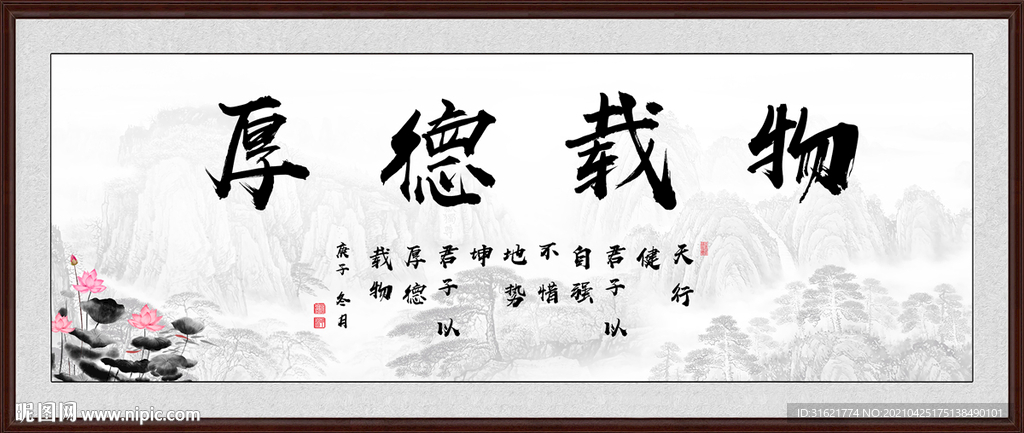 厚德载物
天行
健
君子以
自强
不惜
地势
坤
君子以
厚德
载物
庚子 冬月
昵图网 www.nipic.com
ID:31621774 NO:20210425175138490101